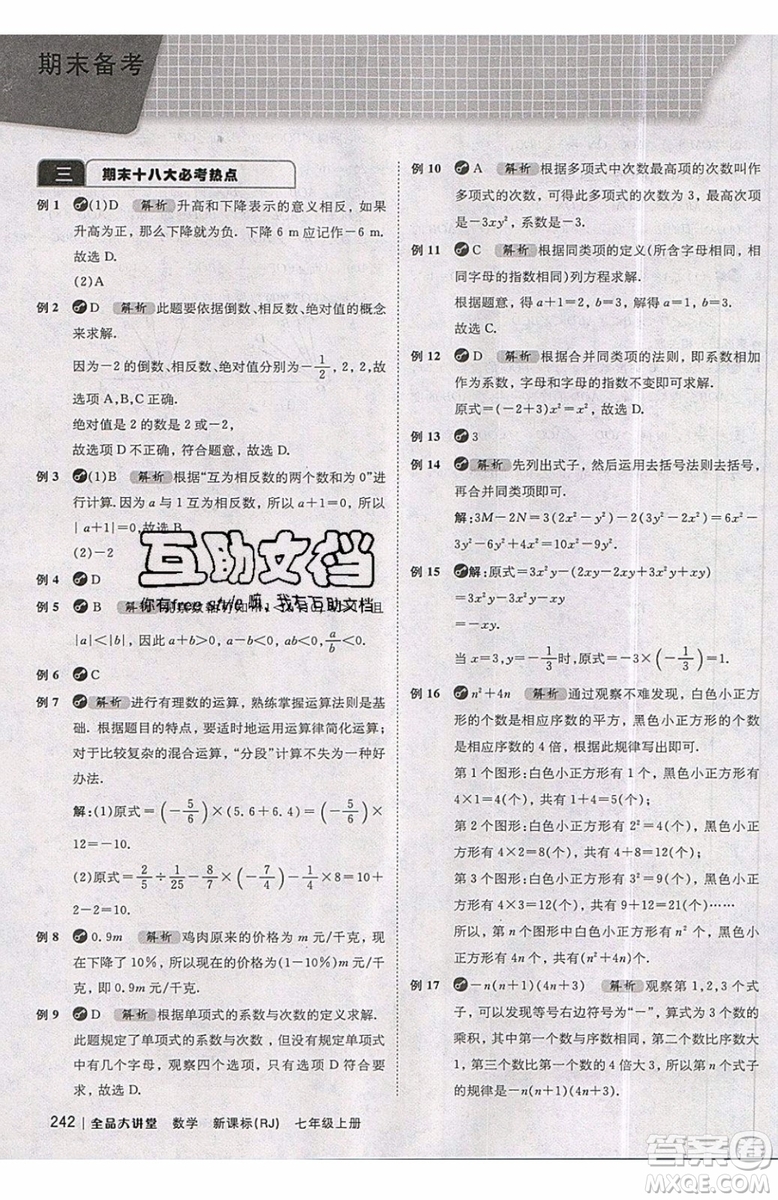 期末备考
三 期末十八大必考热点
例 1 (1)D 解析 升高和下降表示的意义相反，如果
升高为正，那么下降就为负. 下降 6 m 应记作－6 m.
故选 D.
(2)A
例 2 D 解析 此题要依据倒数、相反数、绝对值的概念
来求解.
因为－2 的倒数、相反数、绝对值分别是－1/2，2，2，故
选项 A,B,C 正确.
绝对值是 2 的数是 2 或－2，
故选项 D 不正确，符合题意，故选 D.
例 3 (1)B 解析 根据“互为相反数的两个数和为 0”进
行计算. 因为 a 与 1 互为相反数，所以 a＝－1，所以
|a＋1|＝0. 故选 B.
(2)－2
例 4 D
例 5 B 解析
|a|＜|b|，故 a＋b＞0，a－b＜0，ab＜0，a/b＜0.
例 6 C
例 7 解析 进行有理数的运算，熟练掌握运算法则是
基础. 根据题目的特点，要适时地运用运算律简化运算；
对于比较复杂的混合运算，“分段”计算不失为一种好
办法.
解：(1)原式＝(－5/6)×(5.6＋6.4)＝(－5/6)×
12＝－10.
(2)原式＝2/5÷1/25－8/9×(－3/2)²＋2＝10＋
2－2＝10.
例 8 0.9m 解析 鸡肉原来的价格为 m 元/千克，
现在下降了 10％，故价格为(1－10％)m＝0.9m
元/千克.
例 9 D 解析 根据单项式的系数与次数的定义求解.
此题规定了单项式的系数与次数，但没有规定单项式
中含几个字母，观察四个选项，只有选项 D 符合要求，
故选 D.
242 全品大讲堂 数学 新课标(RJ) 七年级上册
例 10 A 解析 根据多项式中次数最高项的次数叫作
多项式的次数，可得此多项式的次数为 3，最高次项
是－3xy²，系数是－3.
例 11 C 解析 根据同类项的定义(所含字母相同，相
同字母的指数相同)列方程求解.
根据题意，得 a＋1＝2，b＝3，解得 a＝1，b＝3.
故选 C.
例 12 D 解析 根据合并同类项的法则，即系数相加作
为系数，字母和字母的指数不变即可求解.
原式＝(－2＋3)x²＝x²，故选 D.
例 13 3
例 14 解析 先列出式子，然后运用去括号法则去括号，
再合并同类项即可.
解：3M－2N＝3(2x²－y²)－2(x²－2y²)＝
6x²－3y²－2x²＋4y²＝4x²＋y².
例 15 解：原式＝3x²y－(2x²y－2xy＋x²y＋3xy)
＝3x²y－(3x²y＋xy)
＝3x²y－3x²y－xy
＝－xy.
当 x＝3，y＝－1/3时，－xy＝－3×(－1/3)＝1.
例 16 n²＋4n 解析 通过观察不难发现，白色小正方
形的个数是相应序数的平方，黑色小正方形的个数
是相应序数的 4 倍，根据此规律写出即可.
第 1 个图形：白色小正方形有 1 个，黑色小正方形有
4×1＝4(个)，共有 1＋4＝5(个)，
第 2 个图形：白色小正方形有 2²＝4(个)，黑色小正
方形有 4×2＝8(个)，共有 4＋8＝12(个)，
第 3 个图形：白色小正方形有 3²＝9(个)，黑色小正
方形有 4×3＝12(个)，共有 9＋12＝21(个)……
所以，第 n 个图形：白色小正方形有 n² 个，黑色小正
方形有 4n 个，共有(n²＋4n)个.
例 17 －n(n＋1)(4n＋3) 解析 观察第 1,2,3 个式
子，可以发现等号右边符号为“－”，算式为 3 个数的
乘积，其中第一个数与序数相同，第二个数比序数大 1，
第三个数比第一个数的 4 倍大 3，所以第 n 个式子
的规律是－n(n＋1)(4n＋3).
互助文档
你有free style嘛，我有互助文档
答案圈
MXQE.COM